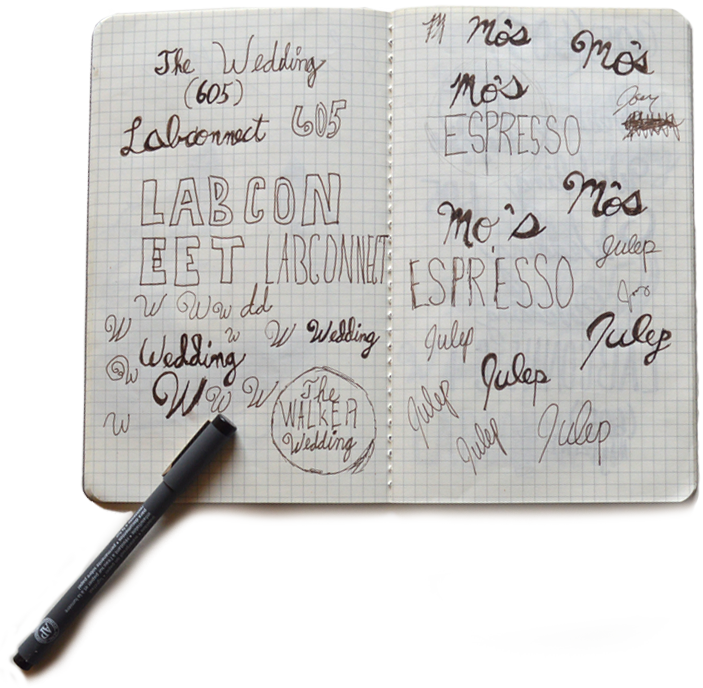 The Wedding
(605)
Labconnect 605
LABCON
EET LABCONNECT
W W W dd
W W W Wedding
Wedding
W
W W W
W
The
WALKER
Wedding
M Mo's Mo's
Mo's
Joey
ESPRESSO
Mo's
Mo's
Julep
ESPRESSO
Julep Julep
Julep
Julep Julep
Julep
AP